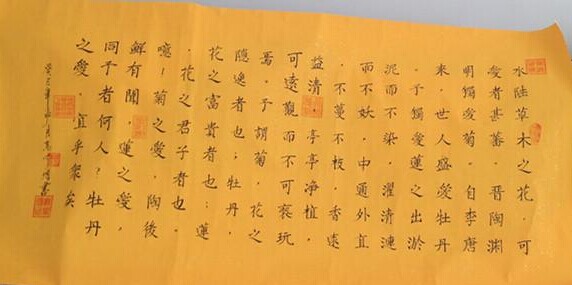 水陸草木之花，可
愛者甚蕃．晋陶渊
明獨愛菊．自李唐
来．世人盛愛牡丹
．予獨愛蓮之出淤
泥而不染．濯清漣
而不妖．中通外直
．不蔓不枝．香遠
益清．亭亭净植．
可遠觀而不可亵玩
焉．予謂菊．花之
隐逸者也；牡丹．
花之富貴者也；蓮
．花之君子者也．
噫！菊之愛．陶後
鮮有聞．蓮之愛．
同予者何人？牡丹
之愛．宜乎衆矣
癸巳年 書